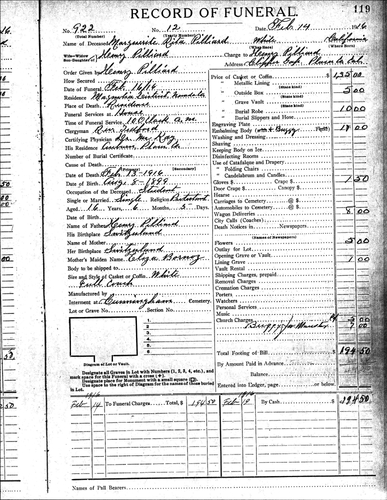 119
RECORD OF FUNERAL
No. 922 12 Feb. 14 1916
Name of Deceased Marguerite Rita Pilliard White California
(Where Born)
Henry Pilliard
Charge to Henry Pilliard
Address Clipper Gap. Placer Co.
Order Given by Henry Pilliard
Date of Funeral Feb 14/16
Residence
Place of Death Residence
Funeral Services at Home
Time of Funeral Services 10 O'Clock A.M.
Clergyman Rev.
Certifying Physician Dr.
His Residence Auburn, Placer Co.
Number of Burial Certificate
Cause of Death
Date of Death Feb 13-1916
Date of Birth Aug 8-1899
Occupation of the Deceased Student
Single or Married Single Religion
Aged 16 Years 6 Months 5 Days
Name of Father Henry Pilliard
His Birthplace Switzerland
Name of Mother
Her Birthplace Switzerland
Mother's Maiden Name Eliza Bornoz
Body to be shipped to
Size and Style of Casket or Coffin White
Full Couch
Manufactured by
Interment at Cunningham Cemetery
Lot or Grave No. Section No.
Diagram of Lot or Vault.
Designate all Graves in Lot with Numbers (1, 2, 3, 4, etc.), and
mark space for this Funeral with a cross (+).
Designate place for Monument with a small square (□).
Use space to the right of Diagram for the names of those buried
in Lot.
Price of Casket or Coffin $135.00
" Metallic Lining
" Outside Box 5.00
" Grave Vault
" Burial Robe 10.00
" Burial Slippers and Hose
Engraving Plate
Embalming Body 18.00
Washing and Dressing
Shaving
Keeping Body on Ice
Disinfecting Rooms
Use of Catafalque and Drapery
" Folding Chairs
" Candelabrum and Candles
Gloves $ 1.50
Door Crape $
Hearse
Carriages to Cemetery @ $
Automobiles to Cemetery @ $
Wagon Deliveries 8.00
City Calls (Coaches)
Death Notices in Newspapers
(Names of Newspapers)
Flowers 5.00
Outlay for Lot
Opening Grave or Vault 1.00
Lining Grave 1.00
Vault Rental
Shipping Charges, prepaid
Removal Charges
Cremation Charges
Porters
Watchers
Personal Services
Music
Church Charges
Total Footing of Bill $194.50
By Amount Paid in Advance
Balance
Entered into Ledger, page or below.
1916
Feb 14 To Funeral Charges Total, $ 194 50
1916
Feb 19 By Cash 194.50
Names of Pall Bearers